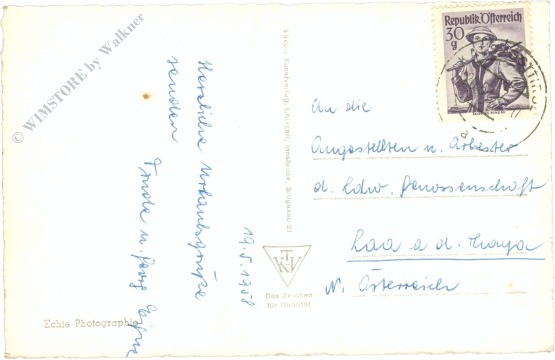 © WIMSTORE by Walkner
Herzliche Urlaubsgrüße
senden
Trude u. Georg
19.5.1958
Echte Photographie
Tiroler Kunstverlag Chizzali, Innsbruck, Sillgasse 21
TKV
Das Zeichen
für Qualität
Republik Österreich
30
g
An die
Angestellten u. Arbeiter
d. Ldw. Genossenschaft
Laa a. d. Thaya
N. Österreich